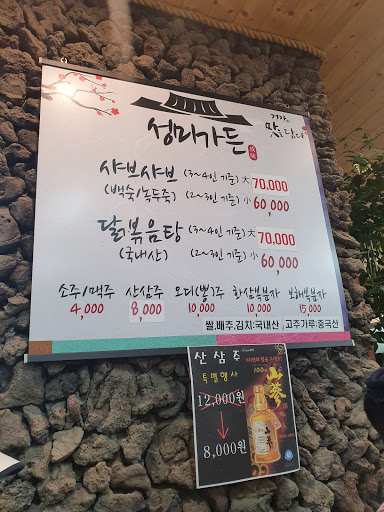 성미가든
정가는
맛집답다
샤브샤브 (3~4인 기준) 大 70,000
(백숙/녹두죽) (2~3인 기준) 小 60,000
닭볶음탕 (3~4인 기준) 大 70,000
(국내산) (2~3인 기준) 小 60,000
소주/맥주 산삼주 오디(뽕)주 화삼복분자 보해복분자
4,000 8,000 10,000 10,000 15,000
쌀,배추,김치:국내산, 고추가루:중국산
산삼주
특별행사
12,000원
→ 8,000원
山蔘